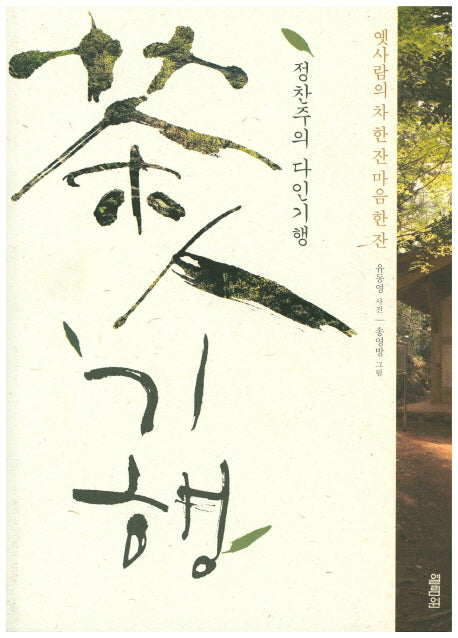 茶人
기행
정찬주의 다인기행
옛사람의 차 한 잔 마음 한 잔
유동영 사진 | 송영방 그림
열림원